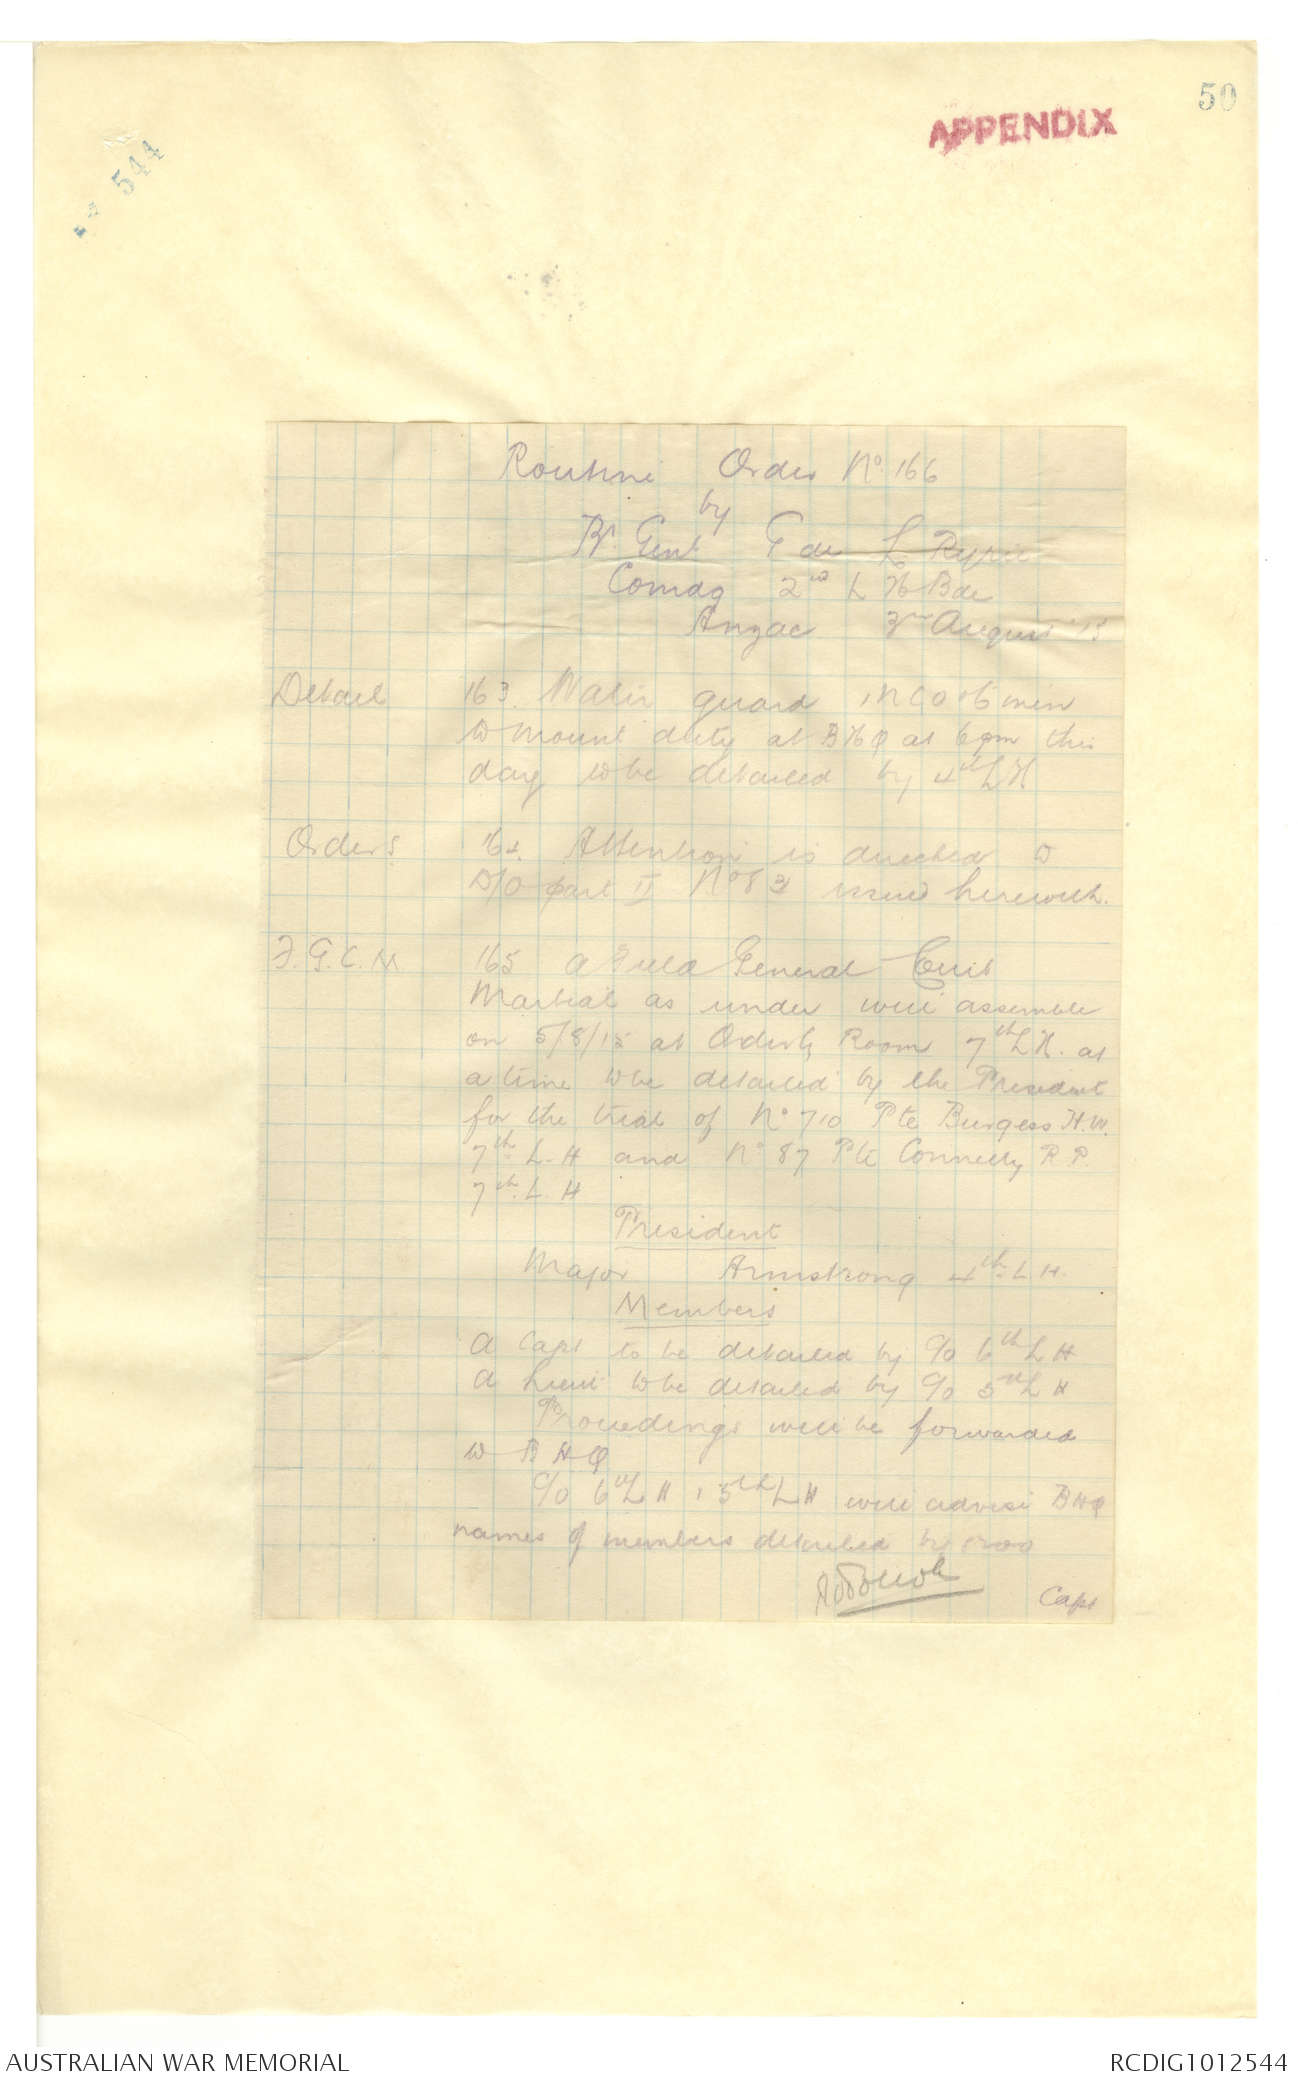 50
APPENDIX
544
Routine Order No. 166
by
Br. Genl G de L Ryrie
Comdg 2nd L H Bde
Anzac 3rd August '15
Detail 163. Water guard 1 NCO + 6 men
to mount duty at BHQ at 6 pm this
day to be detailed by 4th L H
Orders 164. Attention is directed to
D/O part II No 83 issued herewith.
F. G. C. M 165 A Field General Court
Martial as under will assemble
on 5/8/15 at Orderly Room 7th L H. at
a time to be detailed by the President
for the trial of No 710 Pte Burgess H.W.
7th L. H and No 87 Pte Connelly R P.
7th L. H
President
Major Armstrong 4th L H.
Members
A Capt to be detailed by C/O 6th L H
A Lieut to be detailed by C/O 5th L H
Proceedings will be forwarded
to B H Q
C/O 6th L H , 5th L H will advise BHQ
names of members detailed by
Capt
AUSTRALIAN WAR MEMORIAL
RCDIG1012544